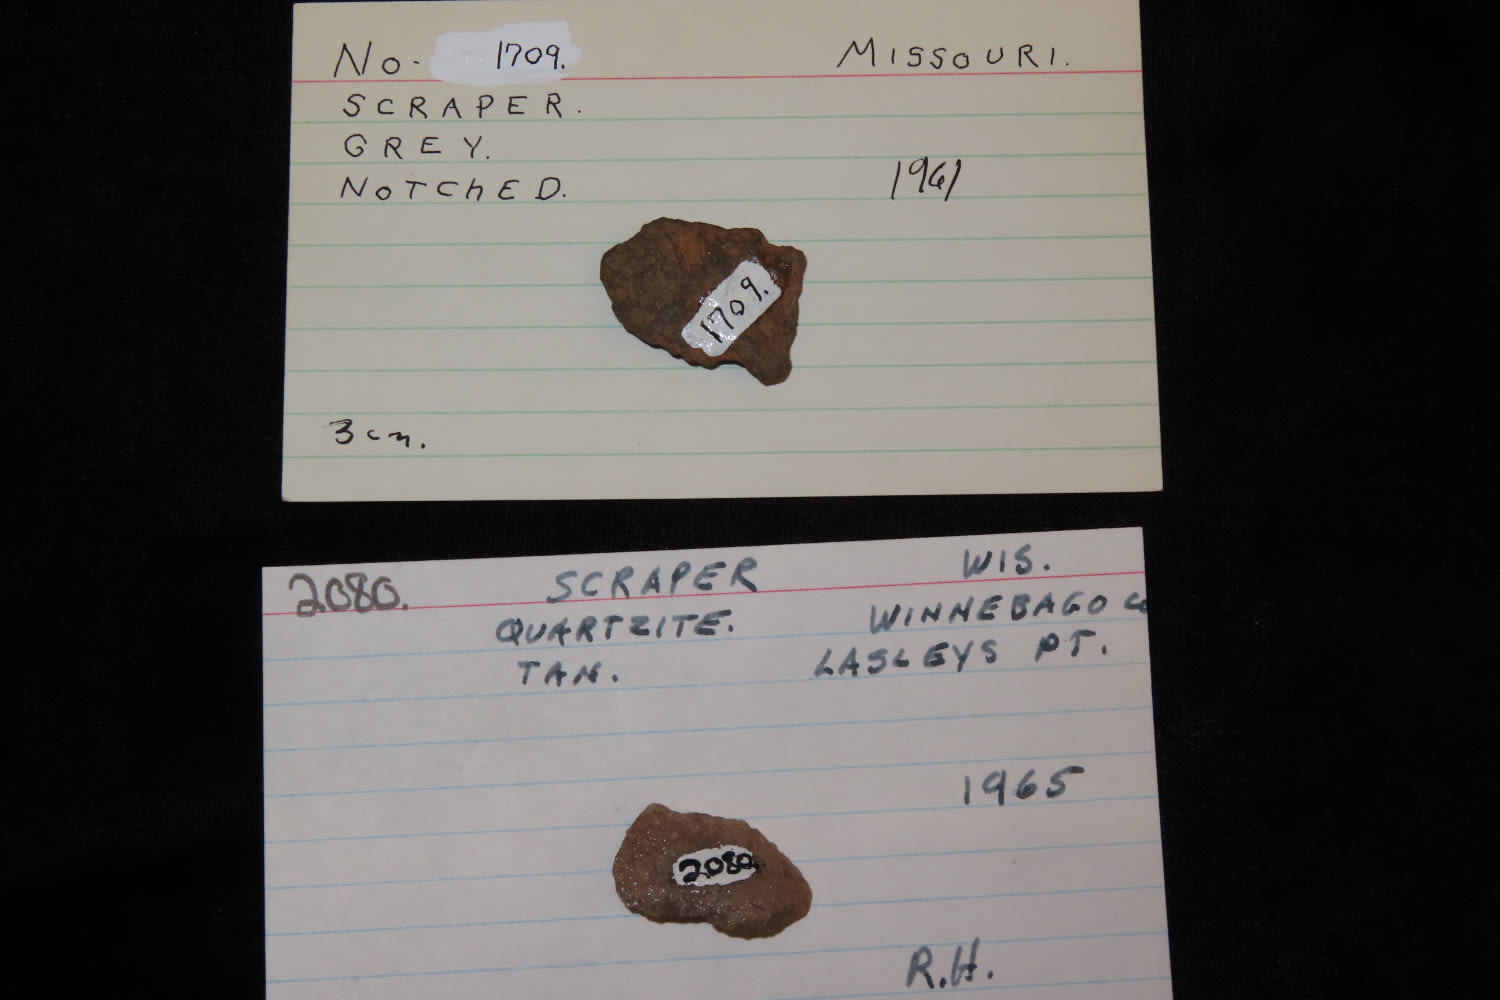 No. 1709. MISSOURI.
SCRAPER.
GREY.
NOTChED. 1961
1709.
3 cm.
2080. SCRAPER WIS.
QUARTZITE. WINNEBAGO Co
TAN. LASLEYS PT.
1965
2080
R.H.